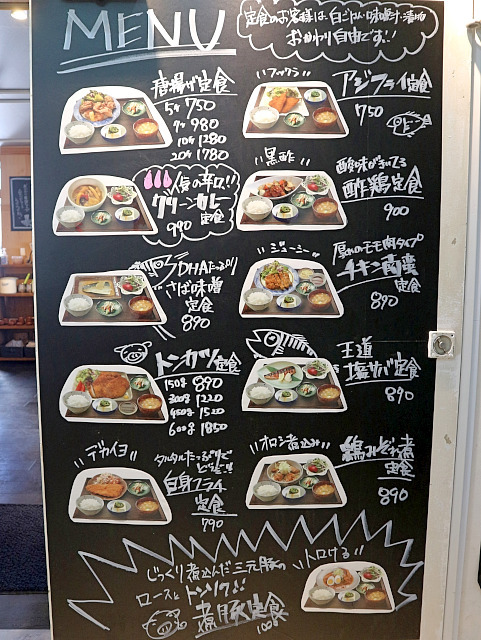 MENU
定食のお客様は白ごはん・味噌汁・漬物
おかわり自由です!!
唐揚げ定食
5ヶ 750
7ヶ 980
10ヶ 1280
20ヶ 1780
フックラ
アジフライ定食
750
人気の辛口!!
グリーンカレー
定食
990
黒酢
酸味がきいてる
酢鶏定食
900
DHAたっぷり
さば味噌
定食
890
ジューシー
厚切れのモモ肉タイプ
チキン南蛮
定食
890
トンカツ定食
150g 890
300g 1220
450g 1520
600g 1850
王道
塩サバ定食
890
デカイヨ
タルタルたっぷりで
どうだ!!
白身フライ
定食
790
オロシ煮込み
鶏みぞれ煮
定食
890
じっくり煮込んだ三元豚の
ロースと トンソク!!
トロける
煮豚定食